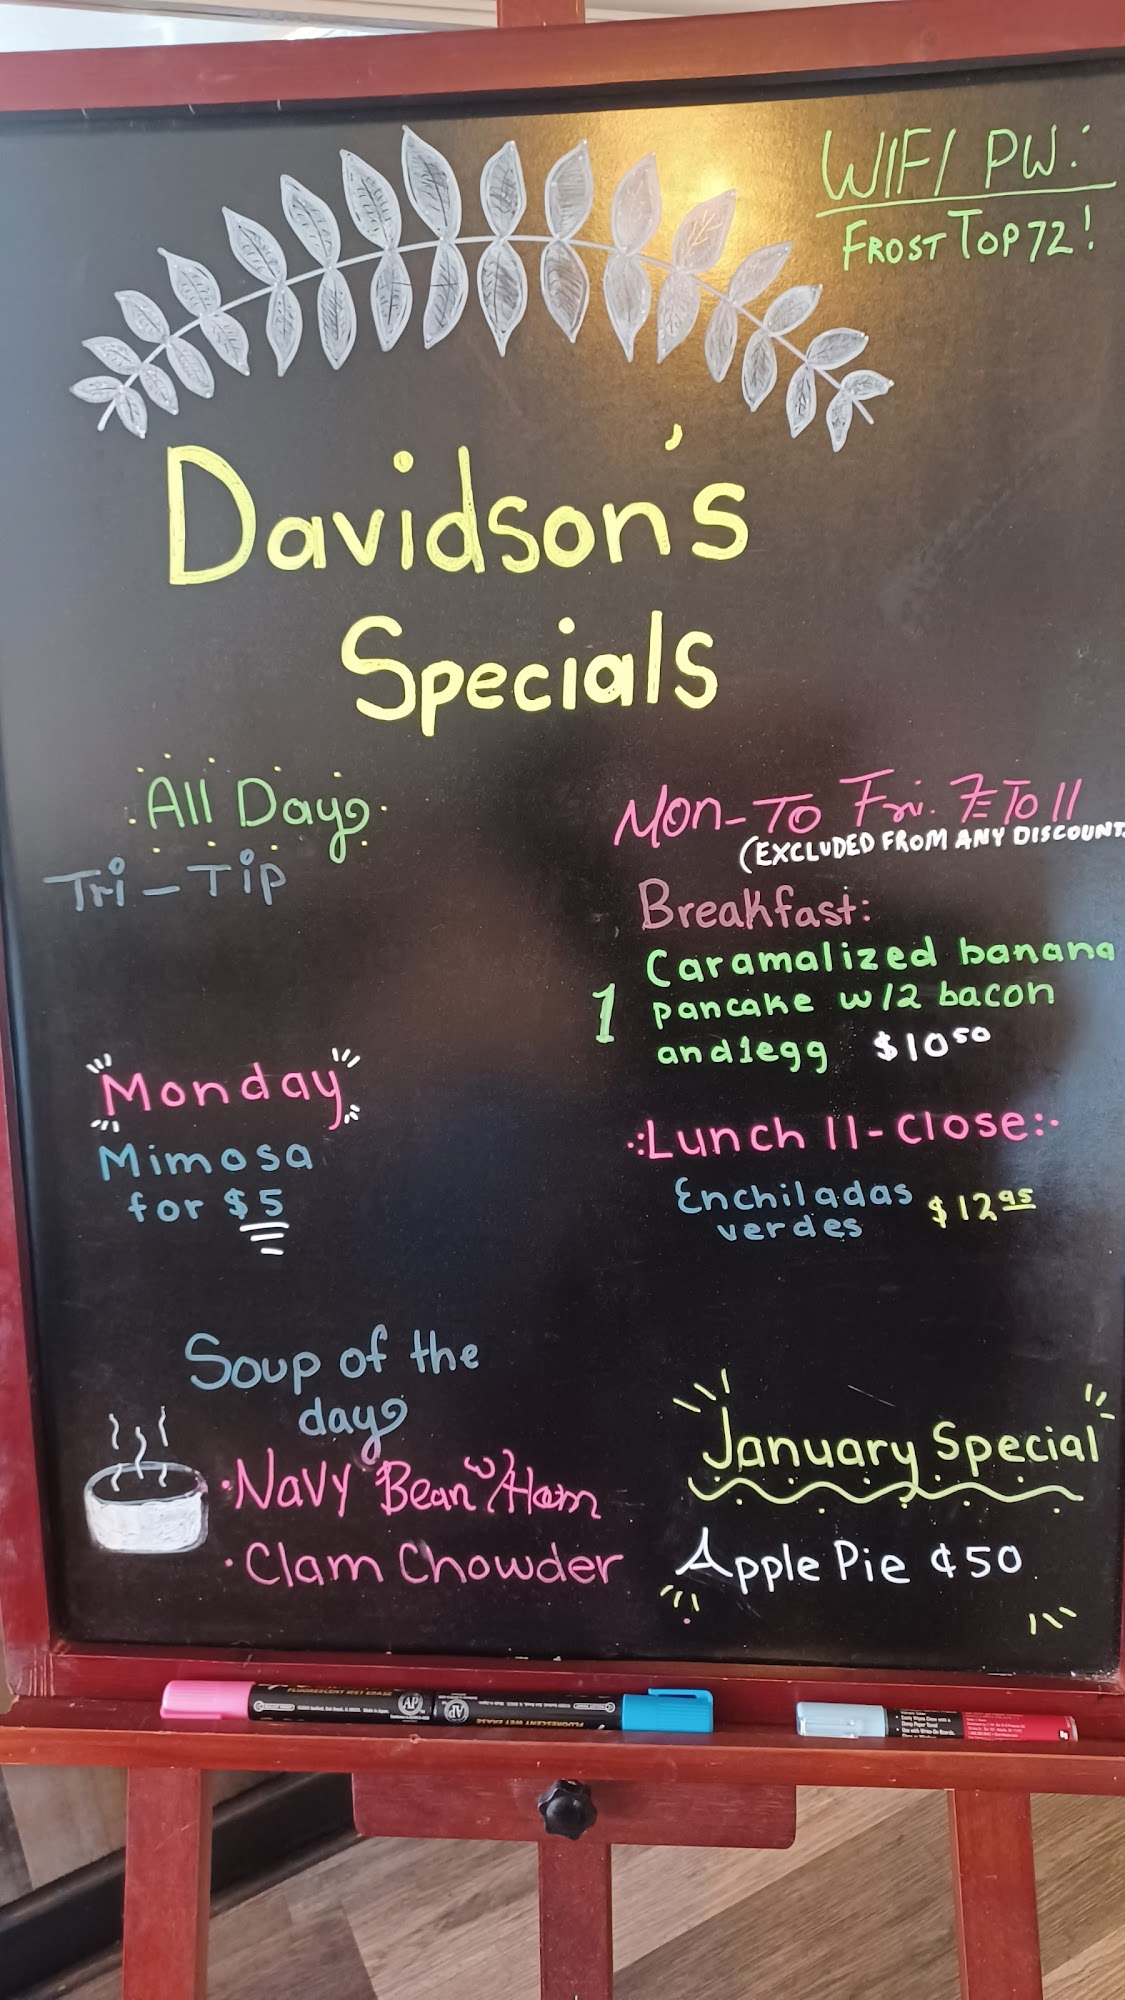 WIFI PW:
FROSTTOP72!
Davidson's
Specials
All Day
Tri-Tip
Monday
Mimosa
for $5
Mon-To Fri. 7 To 11
(EXCLUDED FROM ANY DISCOUNT
Breakfast:
1 Caramalized banana
pancake w/2 bacon
and 1 egg $10.50
Lunch 11-close:
Enchiladas $12.95
verdes
Soup of the
day
• Navy Bean w/Ham
• Clam Chowder
January Special
Apple Pie ¢50
FLUORESCENT WET ERASE
AP
AP
FLUORESCENT WET ERASE